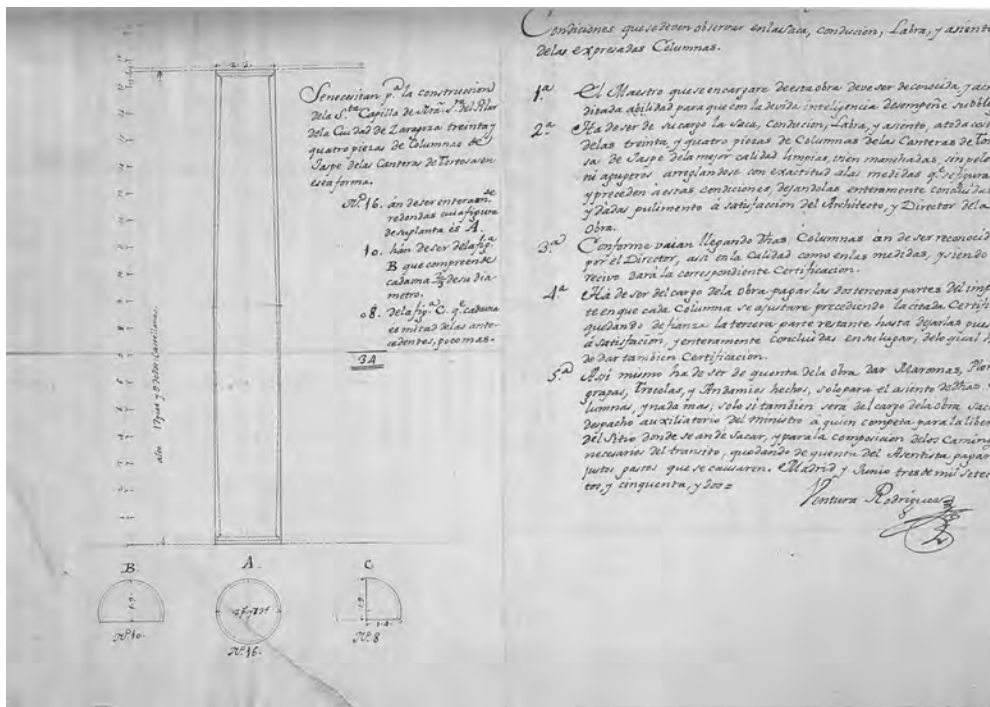 2. 3.
Se necesitan p.ª la construccion
dela S.ta Capilla de Ntrã. S.ra del Pilar
dela Ciudad de Zaragoza treinta y
quatro piezas de Columnas de
Jaspe delas Canteras de Tortosa en
esta forma.
Nº. 16. án de ser enteram.te
redondas cuia figura
de su planta és A.
10. hán de ser dela fig.ª
B que compreende
cada una ⅔ de su dia
metro.
08. dela fig.ª C. q.e cada una
es mitad delas ante-
cedentes, poco mas.
34
alto 17 pies y
B.
1. 9.
Nº. 10.
A.
Nº. 16.
C
1. 9.
1. 4.
Nº. 8
Condiciones que se deven observar en la Saca, conducion, Labra, y asient
delas expresadas Columnas.
1.ª El Maestro que se encargare de esta obra deve ser de conocida, y acre
ditada abilidad para que con la devida inteligencia desempeñe su obli
2.ª Ha de ser de su cargo la Saca, Conducion, Labra, y asiento, a toda cos
delas treinta, y quatro piezas de Columnas delas Canteras de Tor
sa de Jaspe dela mejor calidad limpias, vien manchadas, sin pelo
ni agugeros arreglandose con exactitud alas medidas q.e se figura
y preceden á estas condiciones, dejandolas enteramente concluidas
y dadas pulimento á satisfaccion del Architecto, y Director dela
Obra.
3.ª Conforme vaian llegando dhas Columnas án de ser reconocid
por el Director, assi en la Calidad como en las medidas, y siendo
recivo dará la correspondiente Certificacion.
4.ª Há de ser del cargo dela Obra pagar las dos terceras partes del imp
te en que cada Columna se ajustare precediendo la citada Certifi
quedando de fianza la tercera parte restante hasta dejarlas pues
á satisfacion, y enteramente concluidas en su lugar, delo qual
de dar tambien Certificacion.
5.ª Assi mismo ha de ser de quenta dela obra dar Maromas,
grapas, Trocolas, y Andamios hechos, solo para el asiento de dhas
lumnas, y nada mas; solo si tambien será del cargo dela Obra sac
despacho auxiliatorio del Ministro á quien competa para la liber
del Sitio donde se an de sacar, y para la composicion delos Camin
necesarios del transito, quedando de quenta del Asentista pagar
justos pastos que se causaren. Madrid y Junio tres de mil setec
tos, y cinquenta, y dos=
Ventura Rodriguez